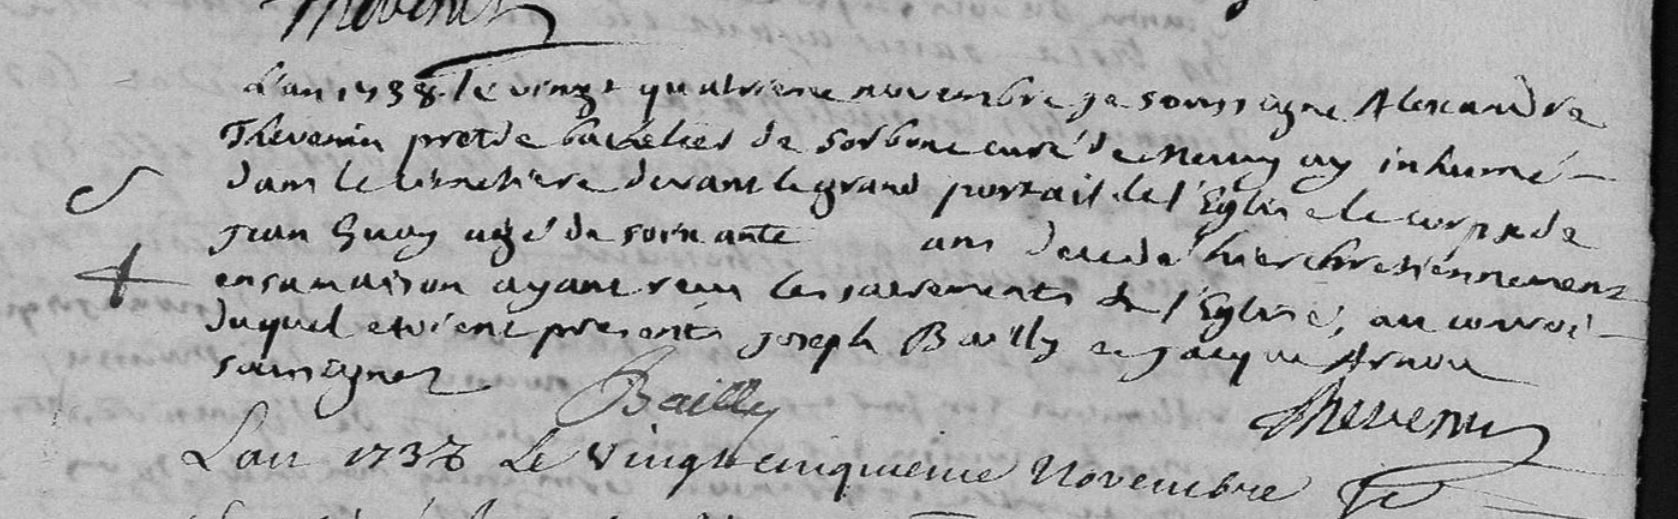 Thevenin
L'an 1738 le vingt quatrieme novembre je soussigne Alexandre
Thevenin pretre bachelier de sorbone curé de Neuvy ay inhumé
dans le cimetiere devant le grand portail de l'Eglise le corps de
jean Guay agé de soixante ans decedé hier chretiennement
en sa maison ayant reçu les sacrements de l'Eglise, au convoi
duquel etoient presents joseph Bailly et jacque Arnou
sousignez
Bailly Thevenin
L'an 1738 Le vingt cinquieme Novembre Je